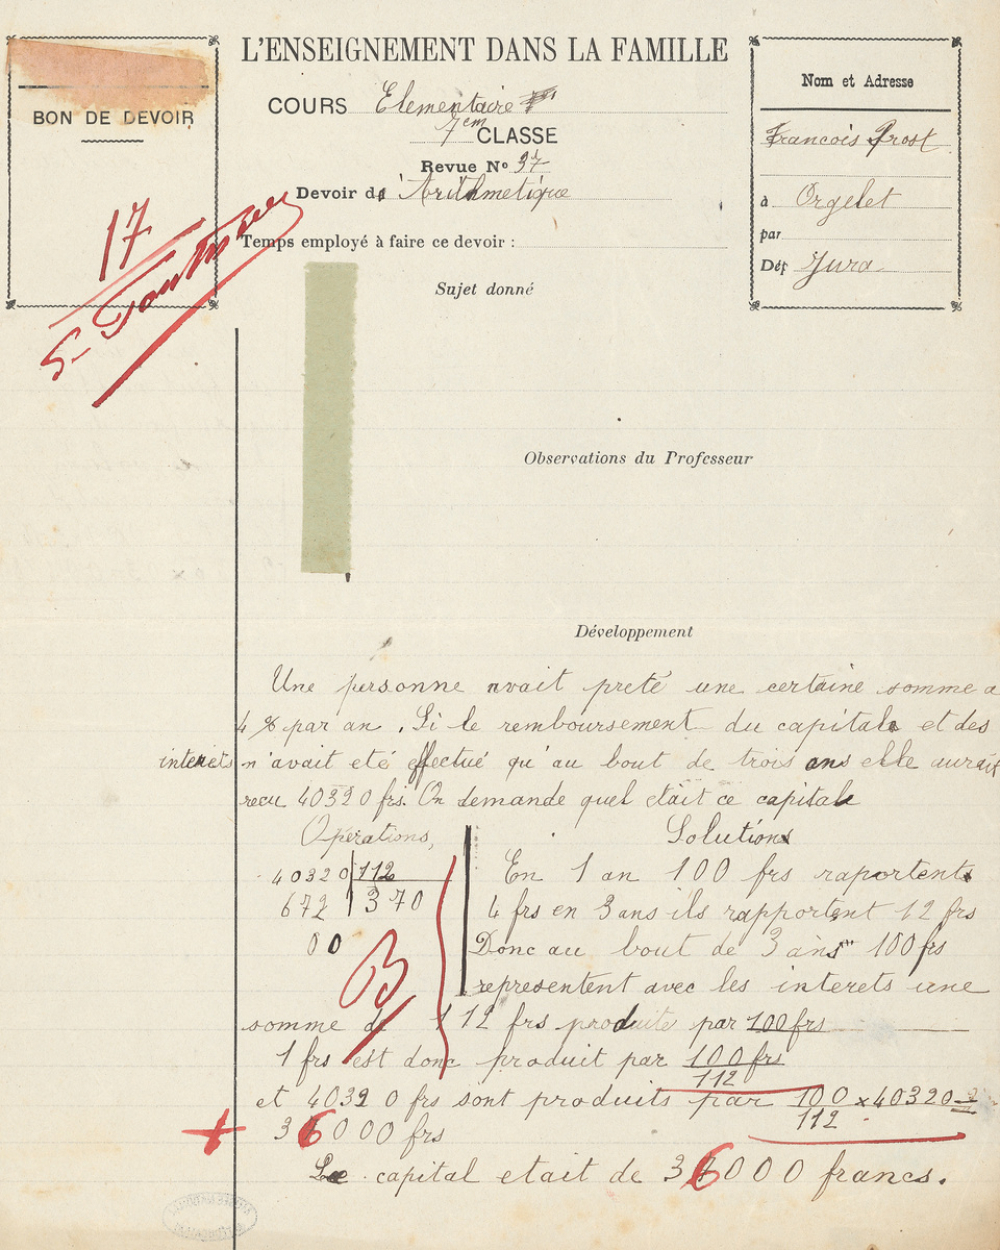 L'ENSEIGNEMENT DANS LA FAMILLE
BON DE DEVOIR
COURS Elementaire
7em CLASSE
Revue No 37
Devoir de Arithmetique
Temps employé à faire ce devoir :
Nom et Adresse
Francois Prost
à Orgelet
par
Dép Jura
17
Sujet donné
Observations du Professeur
Développement
Une personne avait preté une certaine somme a
4 % par an. Si le remboursement du capital et des
interets n'avait eté effectué qu'au bout de trois ans elle aurait
recu 40320 frs. On demande quel était ce capital
Opérations,
Solutions
40320 112
672 370
00
B
En 1 an 100 frs raportent
4 frs en 3 ans ils rapportent 12 frs
Donc au bout de 3 ans 100 frs
representent avec les interets une
somme de 112 frs produite par 100 frs
1 frs est donc produit par 100 frs
112
et 40320 frs sont produits par 100 x 40320 =
112
36000 frs
Le capital etait de 36000 francs.